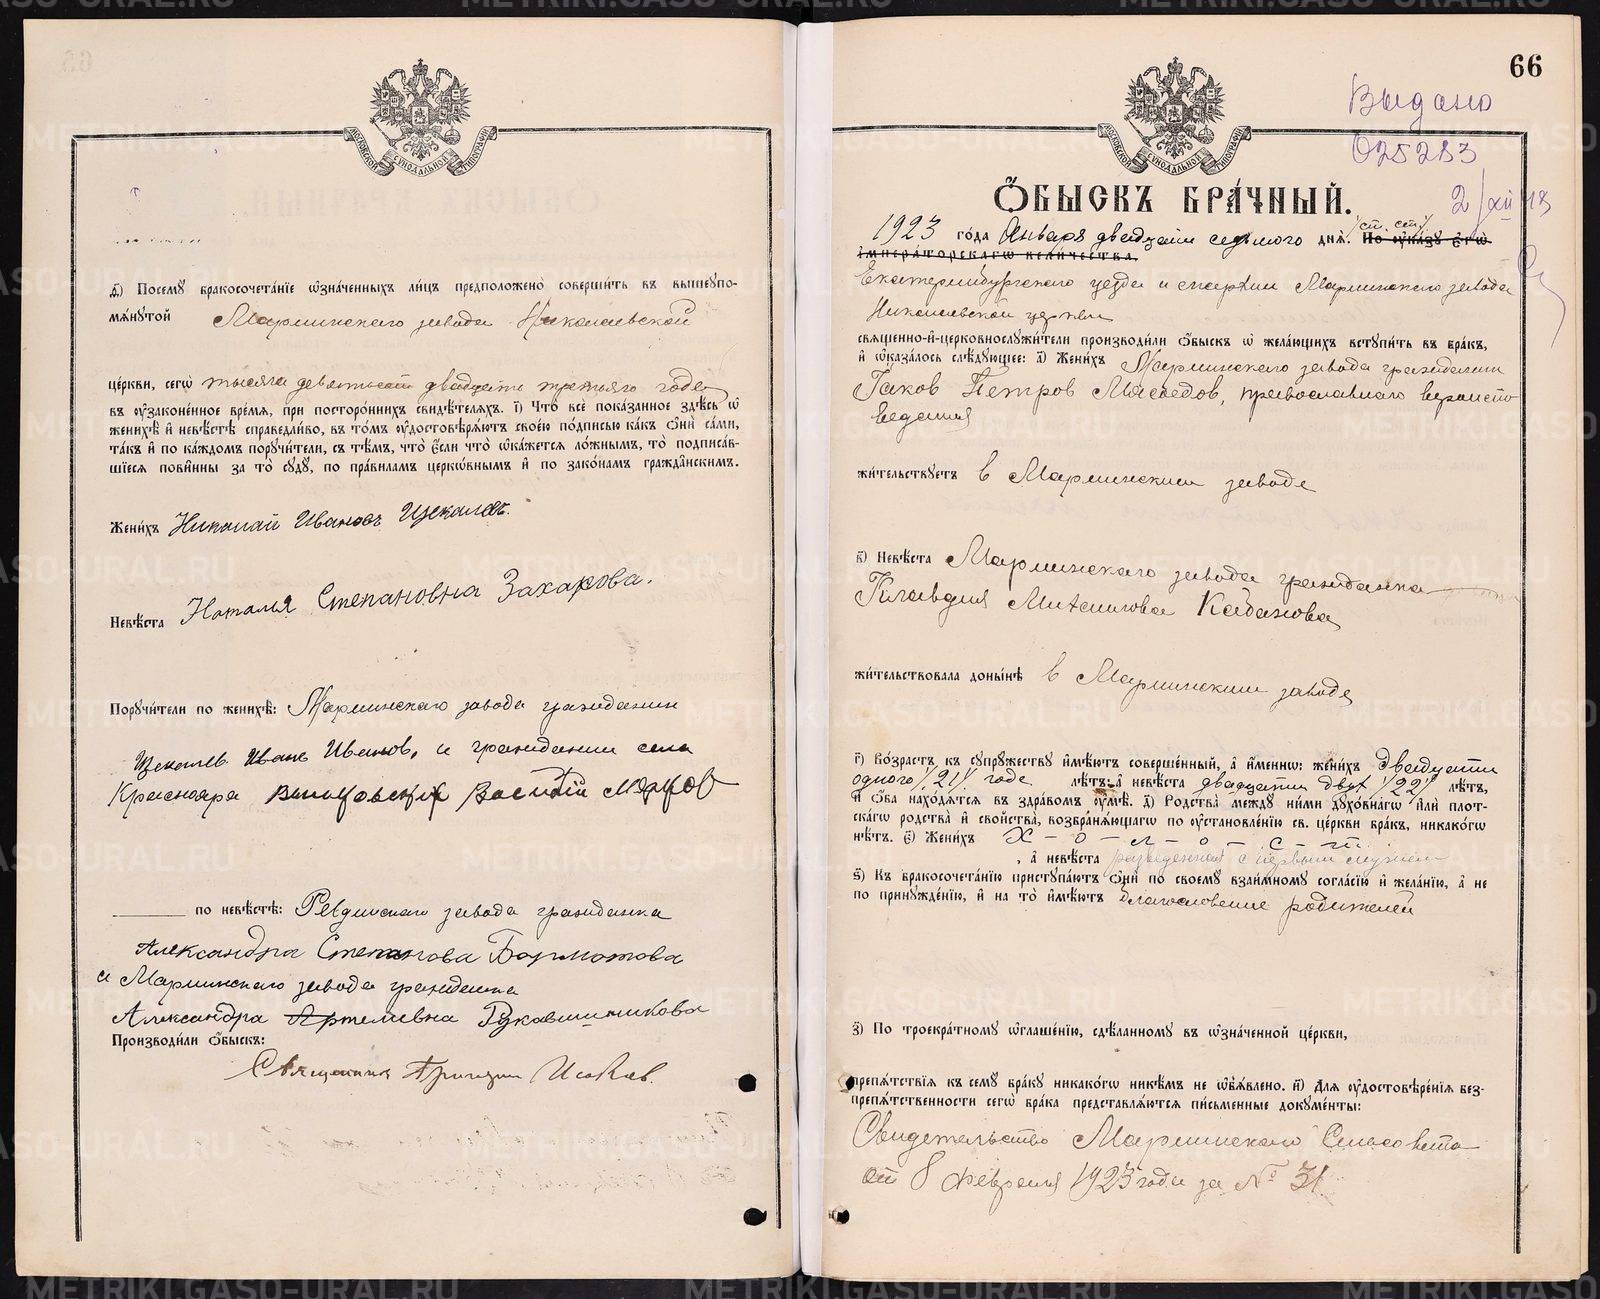 МОСКОВСКОЙ СѴНОДАЛЬНОЙ ТИПОГРАФІИ
ѳ҃) Посемꙋ бракосочета́нїе ѡ҆зна́ченныхъ ли́цъ предположено̀ соверши́ть въ вышеꙋпо-
мѧ́нꙋтой Мариинскаго завода Николаевской
це́ркви, сегѡ̀ тысяча девятьсот двадцать третьяго года
въ ᲂу҆зако́ненное вре́мѧ, при посторо́ннихъ свидѣ́телѧхъ. і҃) Что̀ всѐ пока́занное здѣ́сь ѡ҆
женихѣ̀ и҆ невѣ́стѣ справедли́во, въ то́мъ ᲂу҆достовѣрѧ́ютъ свое́ю по́дписью ка́къ ѻ҆нѝ са́ми,
та́къ и҆ по ка́ждомъ порꙋчи́тели, съ тѣ́мъ, что̀ є҆́сли что̀ ѡ҆ка́жетсѧ ло́жнымъ, то̀ подписа́в-
шїесѧ пови́нны за то̀ сꙋдꙋ̀, по пра́виламъ церкѡ́внымъ и҆ по зако́намъ гражда̑нскимъ.
Жени́хъ Николай Ивановъ Щекалевъ.
Невѣ́ста Наталья Степановна Захарова.
Порꙋчи́тели по женихѣ̀: Мариинскаго завода гражданин
Щекалев Иван Иванов, и гражданин села
Краснояра Василий
по невѣ́стѣ: Ревдинскаго завода гражданка
Александра Степанова Бормотова
и Мариинскаго завода гражданка
Александра Артемиевна Рукавишникова
Производи́ли ѻ҆́быскъ:
Священник Григорий Исаков.
66
Выдано
025283
2/XII 48
МОСКОВСКОЙ СѴНОДАЛЬНОЙ ТИПОГРАФІИ
Ѻ҆́БЫСКЪ БРА́ЧНЫЙ.
1923 го́да Января двадцать седьмого днѧ̀. /ст. ст./ По ᲂу҆ка́зꙋ є҆гѡ̀
і҆мпера́торскагѡ вели́чества.
Екатеринбургского уезда и епархии Мариинскаго завода
Николаевской церкви
свѧще́нно-и҆-церковнослꙋжи́тели производи́ли ѻ҆́быскъ ѡ҆ жела́ющихъ встꙋпи́ть въ бра́къ,
и҆ ѡ҆каза́лось слѣ́дꙋющее: а҃) Жени́хъ Мариинскаго завода гражданин
Іаков Петров Маседов, православнаго вероиспо
ведения
жи́тельствꙋетъ в Мариинском заводе
в҃) Невѣ́ста Мариинскаго завода гражданка
Клавдия Михаилова Кабанова
жи́тельствовала доны́нѣ в Мариинском заводе
г҃) Во́зрастъ къ сꙋпрꙋ́жествꙋ и҆мѣ́ютъ соверше́нный, а҆ и҆́менно: жени́хъ двадцати
одного /21/ года лѣ́тъ; а҆ невѣ́ста двадцати двух /22/ лѣ́тъ,
и҆ ѻ҆́ба нахо́дѧтсѧ въ здра́вомъ ᲂу҆мѣ̀. д҃) Родства̀ междꙋ̀ ни́ми дꙋхо́внагѡ и҆лѝ пло́т-
скагѡ родства̀ и҆ сво́йства, возбранѧ́ющагѡ по ᲂу҆становле́нїю св. це́ркви бра́къ, никако́гѡ
нѣ́тъ. є҃) Жени́хъ Х – о – л – о – с – т
, а҆ невѣ́ста разведенная с первым мужем
ѕ҃) Къ бракосочета́нїю пристꙋпа́ютъ ѻ҆нѝ по своемꙋ̀ взаи́мномꙋ согла́сїю и҆ жела́нїю, а҆ не
по принꙋжде́нїю, и҆ на то̀ и҆мѣ́ютъ благословение родителей
з҃) По троекра́тномꙋ ѡ҆глаше́нїю, сдѣ́ланномꙋ въ ѡ҆зна́ченной це́ркви,
препѧ́тствїѧ къ семꙋ̀ бра́кꙋ никако́гѡ никѣ́мъ не ѡ҆б̾ѧ́влено. и҃) Длѧ ᲂу҆достовѣре́нїѧ без-
препѧ́тственности сегѡ̀ бра́ка представлѧ́ютсѧ пи́сьменные докꙋме́нты:
Свидетельство Мариинскаго Сельсовета
от 8 февраля 1923 года за № 31
METRIKI.GASO-URAL.RU